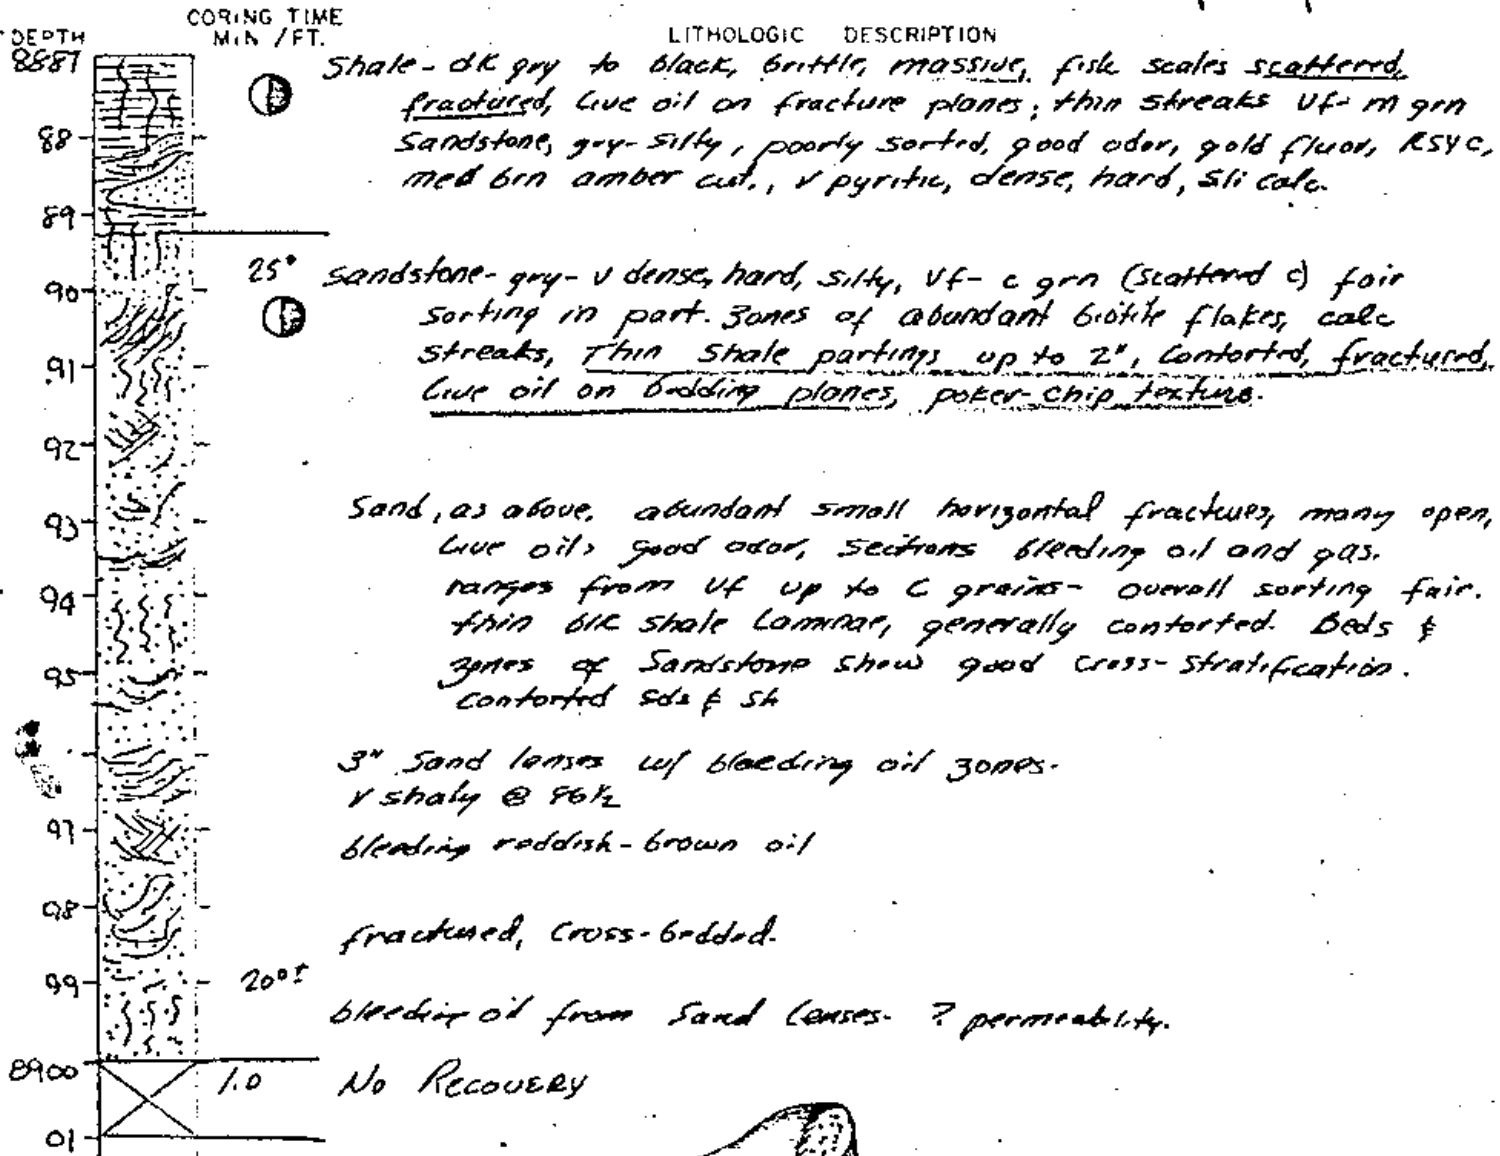 DEPTH
CORING TIME
MIN /FT.
LITHOLOGIC DESCRIPTION
8887
Shale - dk gry to black, brittle, massive, fish scales scattered,
fractured, live oil on fracture planes; thin streaks vf-m grn
88
Sandstone, gry-silty, poorly sorted, good odor, gold fluor,
med brn amber cut., v pyritic, dense, hard, sli calc.
89
25°
Sandstone - gry - v dense, hard, silty, vf - c grn (scattered c) fair
90
sorting in part. Zones of abundant biotite flakes, calc
streaks, Thin Shale partings up to 2", Contorted, fractured,
91
live oil on bedding planes, poker-chip texture.
92
Sand, as above, abundant small horizontal fractures, many open,
93
live oil, good odor, sections bleeding oil and gas.
ranges from vf up to C grains - overall sorting fair.
94
thin blk shale Laminae, generally contorted. Beds &
zones of Sandstone show good cross-stratification.
95
contorted sds & sh
3" Sand lenses w/ bleeding oil zones.
v shaly @ 96 1/2
97
bleeding reddish-brown oil
98
fractured, Cross-bedded.
99
20°±
bleeding oil from Sand Lenses- ? permeability.
8900
1.0
No Recovery
01